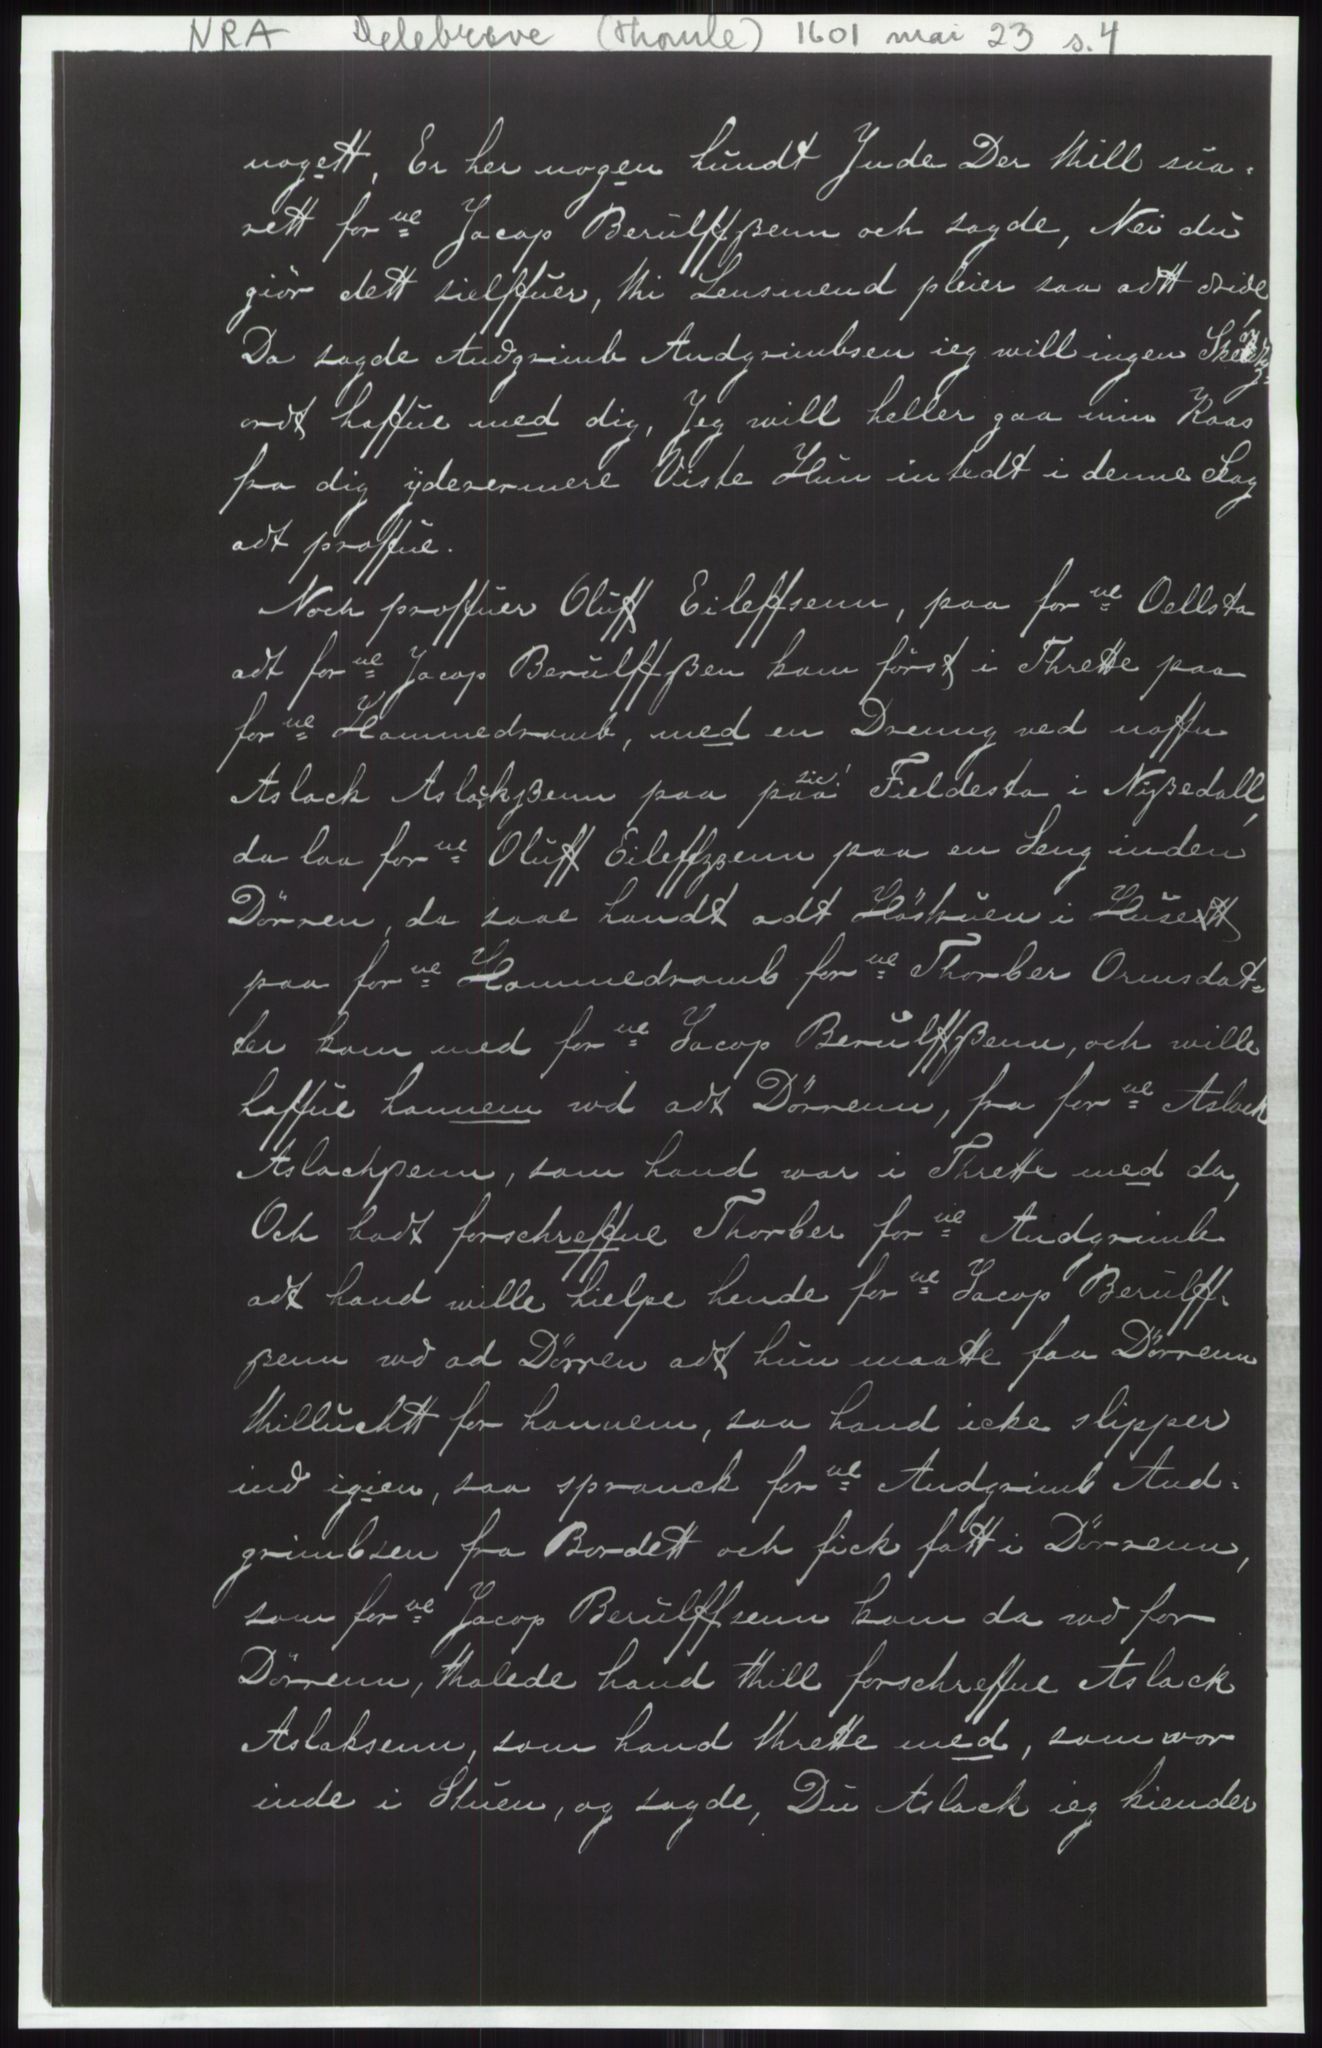 NRA Delebreve (Thomle) 1601 mai 23 s. 4
nogett, Er her nogen hundt Inde Der thill sua-
rett for^ne Jacop Berulffßenn och sagde, Nei du
giör dett sielffuer, thi Lensmend pleier saa adtt
Da sagde Audgrimb Audgrimbsen ieg will ingen
ordt haffue med dig, Jeg will heller gaa min Kaas
fra dig ÿdenermere Viste Hun intedt i denne Sag
adt proffue.
Noch proffuer Oluff Eileffsenn, paa for^ne Oellsta
adt for^ne Jacop Berulffßen kom först i Thrette paa
for^ne Hommedromb, med en Dreng ved naffn
Aslack Aslackßenn paa paa sic! Fieldesta i Nißedall,
da laa for^ne Oluff Eileffzenn paa en Seng inden
Dörren, da saae handt adt Höstruen i Husett
paa for^ne Hommedromb for^ne Thorber Ormsdot-
ter kom med for^ne Jacop Berulffßenn, och wille
haffue hannem wd adt Dörrenn, fra for^ne Aslack
Aslachßenn, som hand war i Thrette med da,
Och badt forschreffue Thorber for^ne Audgrimb
adt hand wille hielpe hende for^ne Jacop Berulff-
ßenn wd ad Dörren adt hun maatte faa Dörrenn
thilluchtt for hannem, saa hand icke slipper
ind igien, saa spranck for^ne Audgrimb Aud-
grimbsen fra Bordett och fick fatt i Dörrenn,
som for^ne Jacop Berulffsenn kom da wd for
Dörrenn, thalede hand thill forschreffue Aslack
Aslaksenn, som hand thrette med, som wor
inde i Stuen, og sagde, Du Aslack ieg kiender